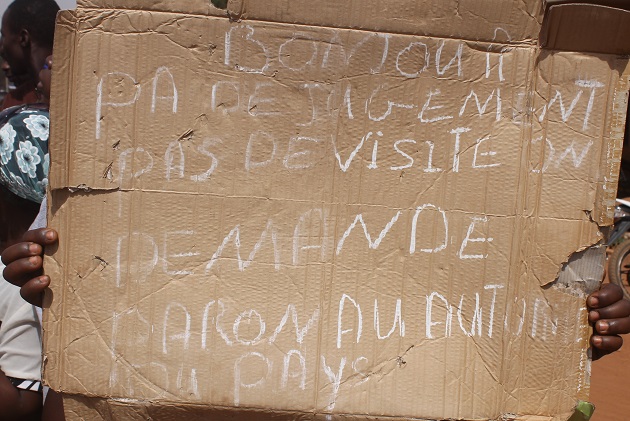 BONJOUR
PA DE JUGEMENT
PAS DE VISITE ON
DEMANDE
PARON AU AUTON
DU PAYS